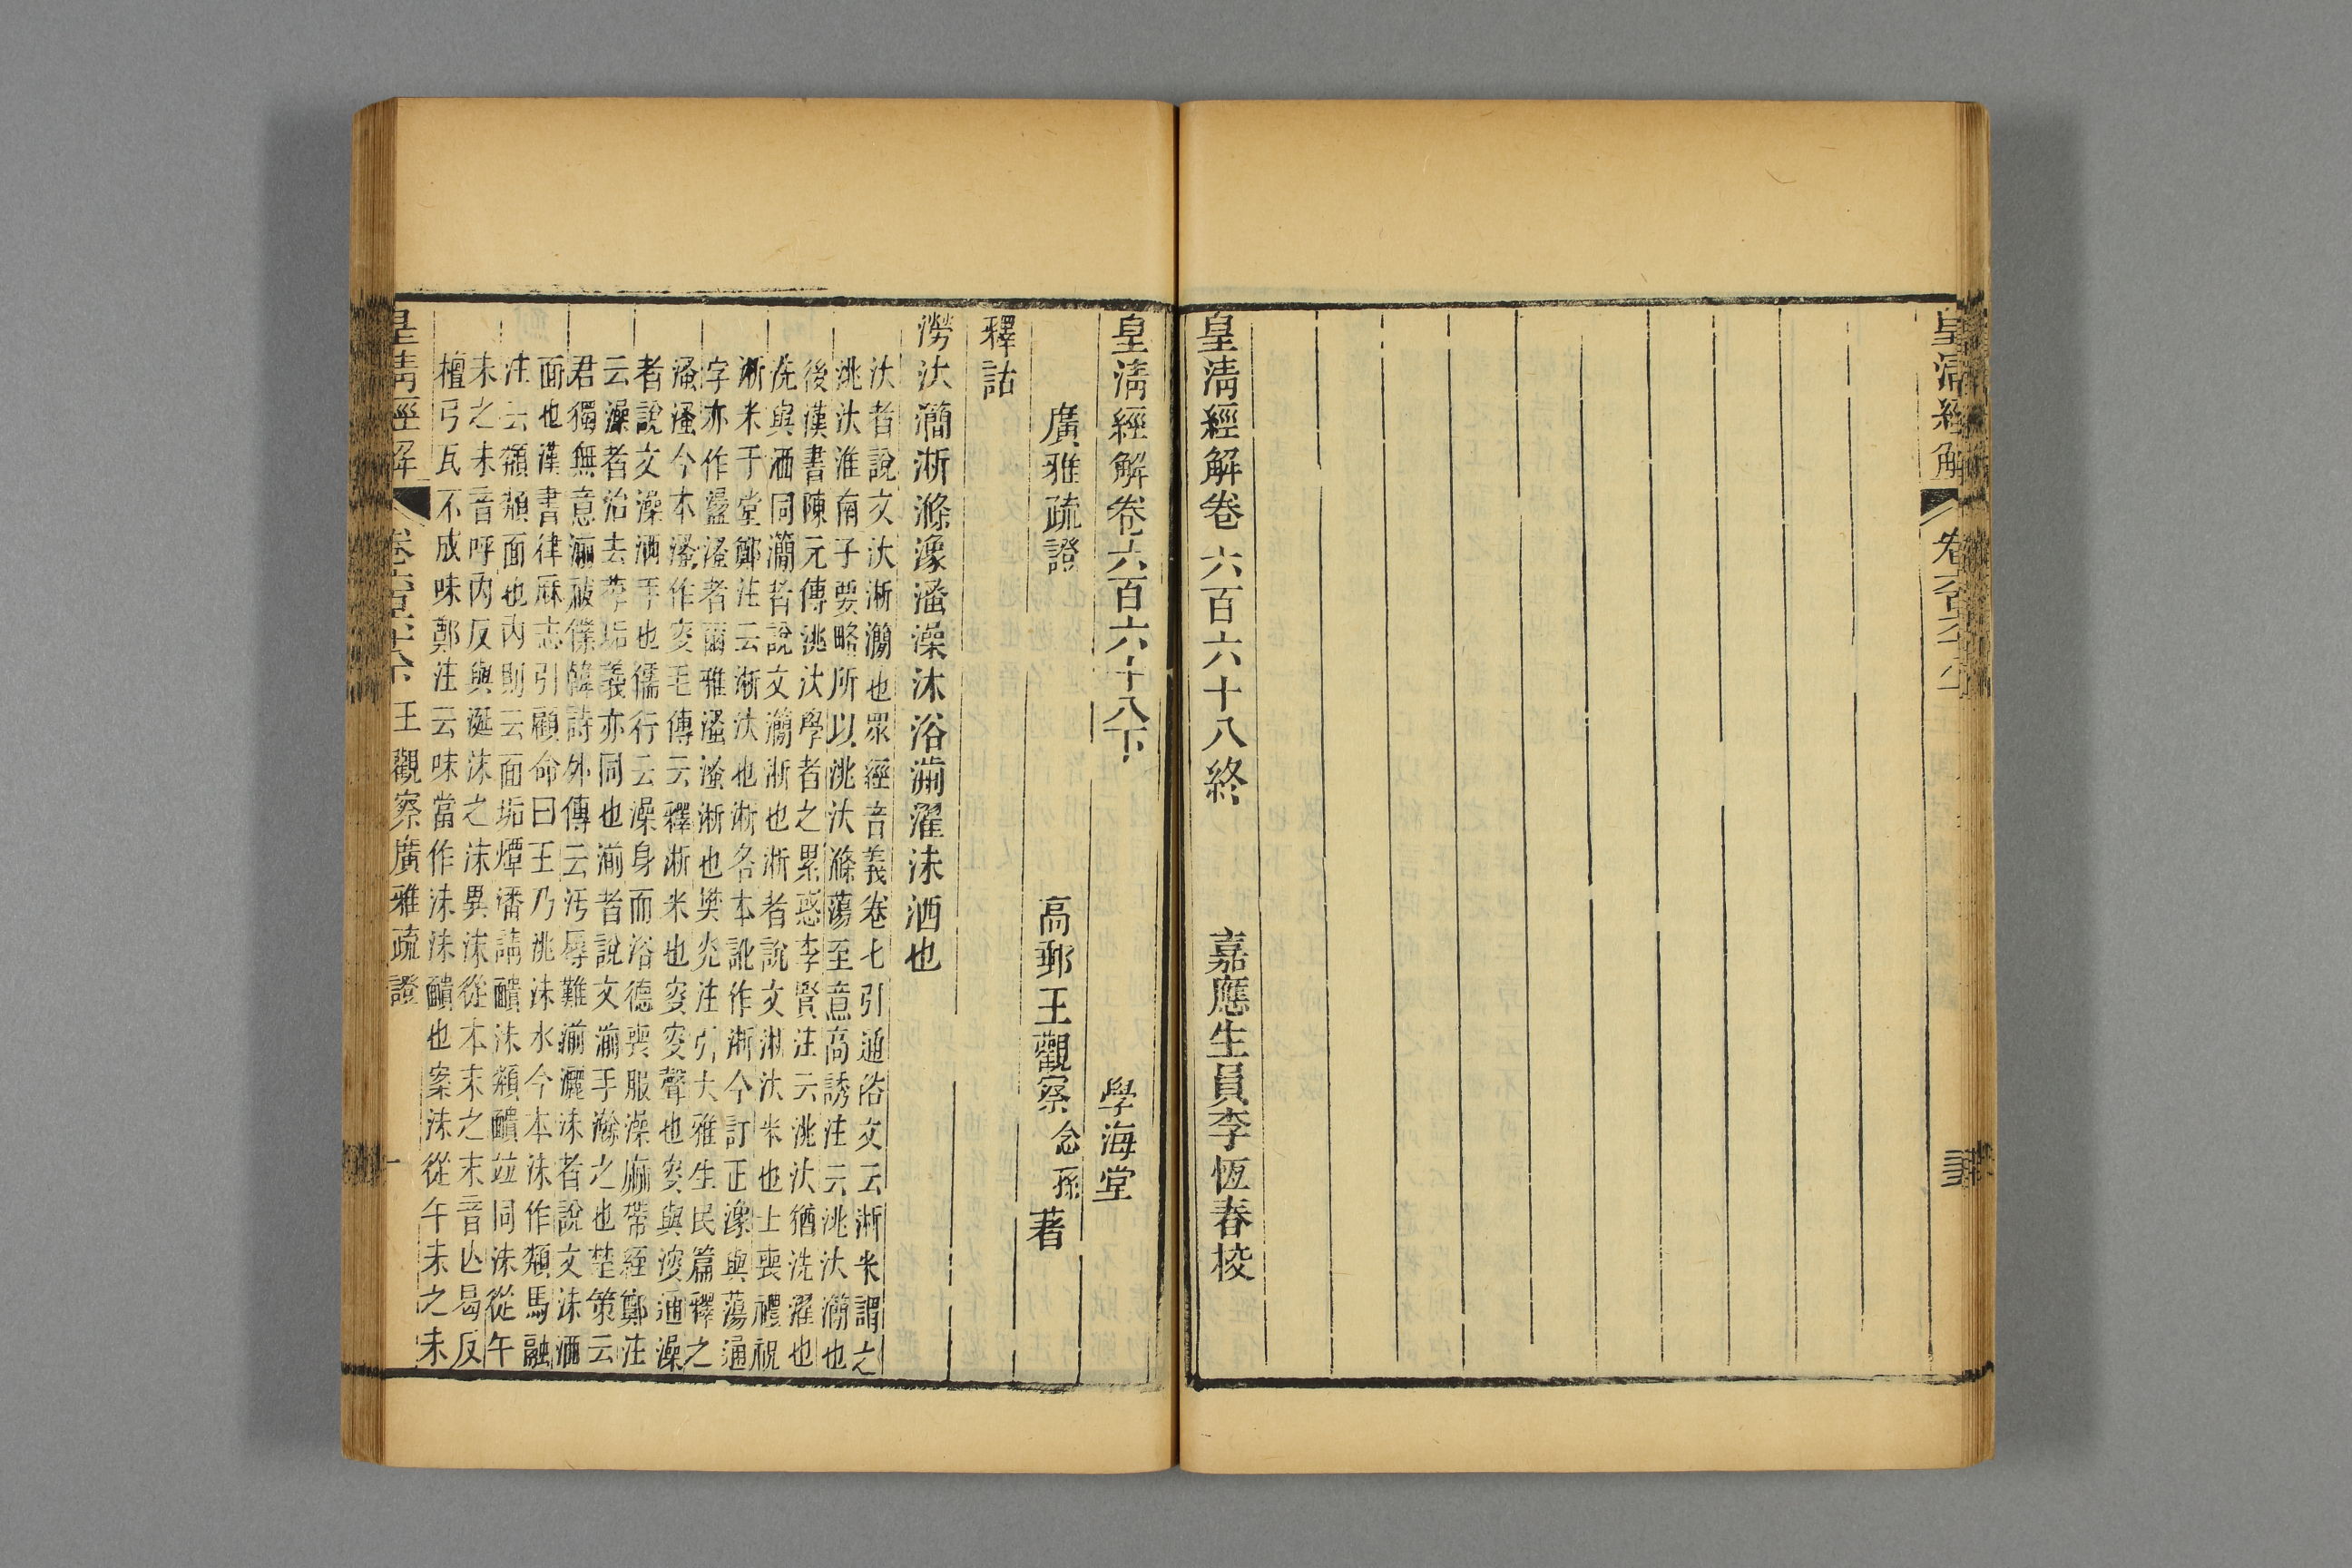 皇清經解
皇清經解卷六百六十八終
嘉應生員李恆春校
皇清經解卷六百六十八下
學海堂
廣雅疏證
高郵王觀察念孫著
釋詁
澇汏𤄫淅滌潒溞澡沐浴湔濯沬洒也
汏者說文汏淅𤄫也眾經音義卷七引通俗文云淅米謂之
洮汏淮南子要略所以洮汏滌蕩至意高誘注云洮汏𤄫也
後漢書陳元傳洮汏學者之累惑李賢注云洮汏猶洗濯也
洗與洒同𤄫者說文𤄫淅也淅者說文淅汏米也士喪禮祝
淅米于堂鄭注云淅汏也淅各本訛作漸今訂正潒與蕩通
字亦作盪溞者爾雅溞溞淅也樊光注引大雅生民篇釋之
溞溞今本溞作叜毛傳云釋淅米也叜叜聲也叜與溲通澡
者說文澡洒手也儒行云澡身而浴德喪服澡麻帶絰鄭注
云澡者治去莩垢義亦同也湔者說文湔手澣之也楚策云
君獨無意湔祓僕韓詩外傳云汚辱難湔灑沬者說文沬洒
面也漢書律厤志引顧命曰王乃洮沬水今本沬作頮馬融
注云頮頮面也內則云面垢燂潘請靧沬頮靧竝同沬從午
未之未音呼內反與涎沫之沫異沫從本末之末音亡曷反
檀弓瓦不成味鄭注云味當作沬沬靧也案沬從午未之未
皇清經解
王觀察廣雅疏證
一